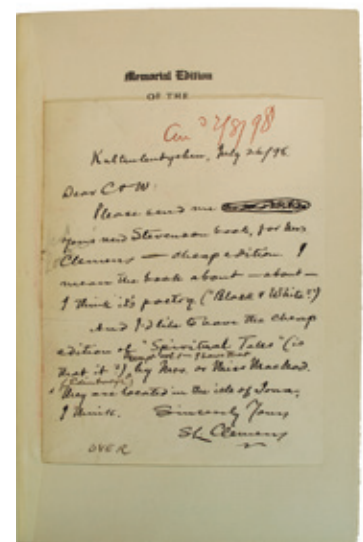 Memorial Edition
OF THE
And 2/8/98
Kaltenleutgeben, July 26/98
Dear C & W:
Please send me
your new Stevenson book, for Mrs
Clemens — cheap edition. I
mean the book about — about —
I think it's poetry ("Black & White"?)
And I'd like to have the cheap
edition of "Spiritual Tales" (is
that it?), by Mrs. or Miss Macleod.
They are located in the isle of Iona,
I think. Sincerely Yours
SL Clemens
OVER